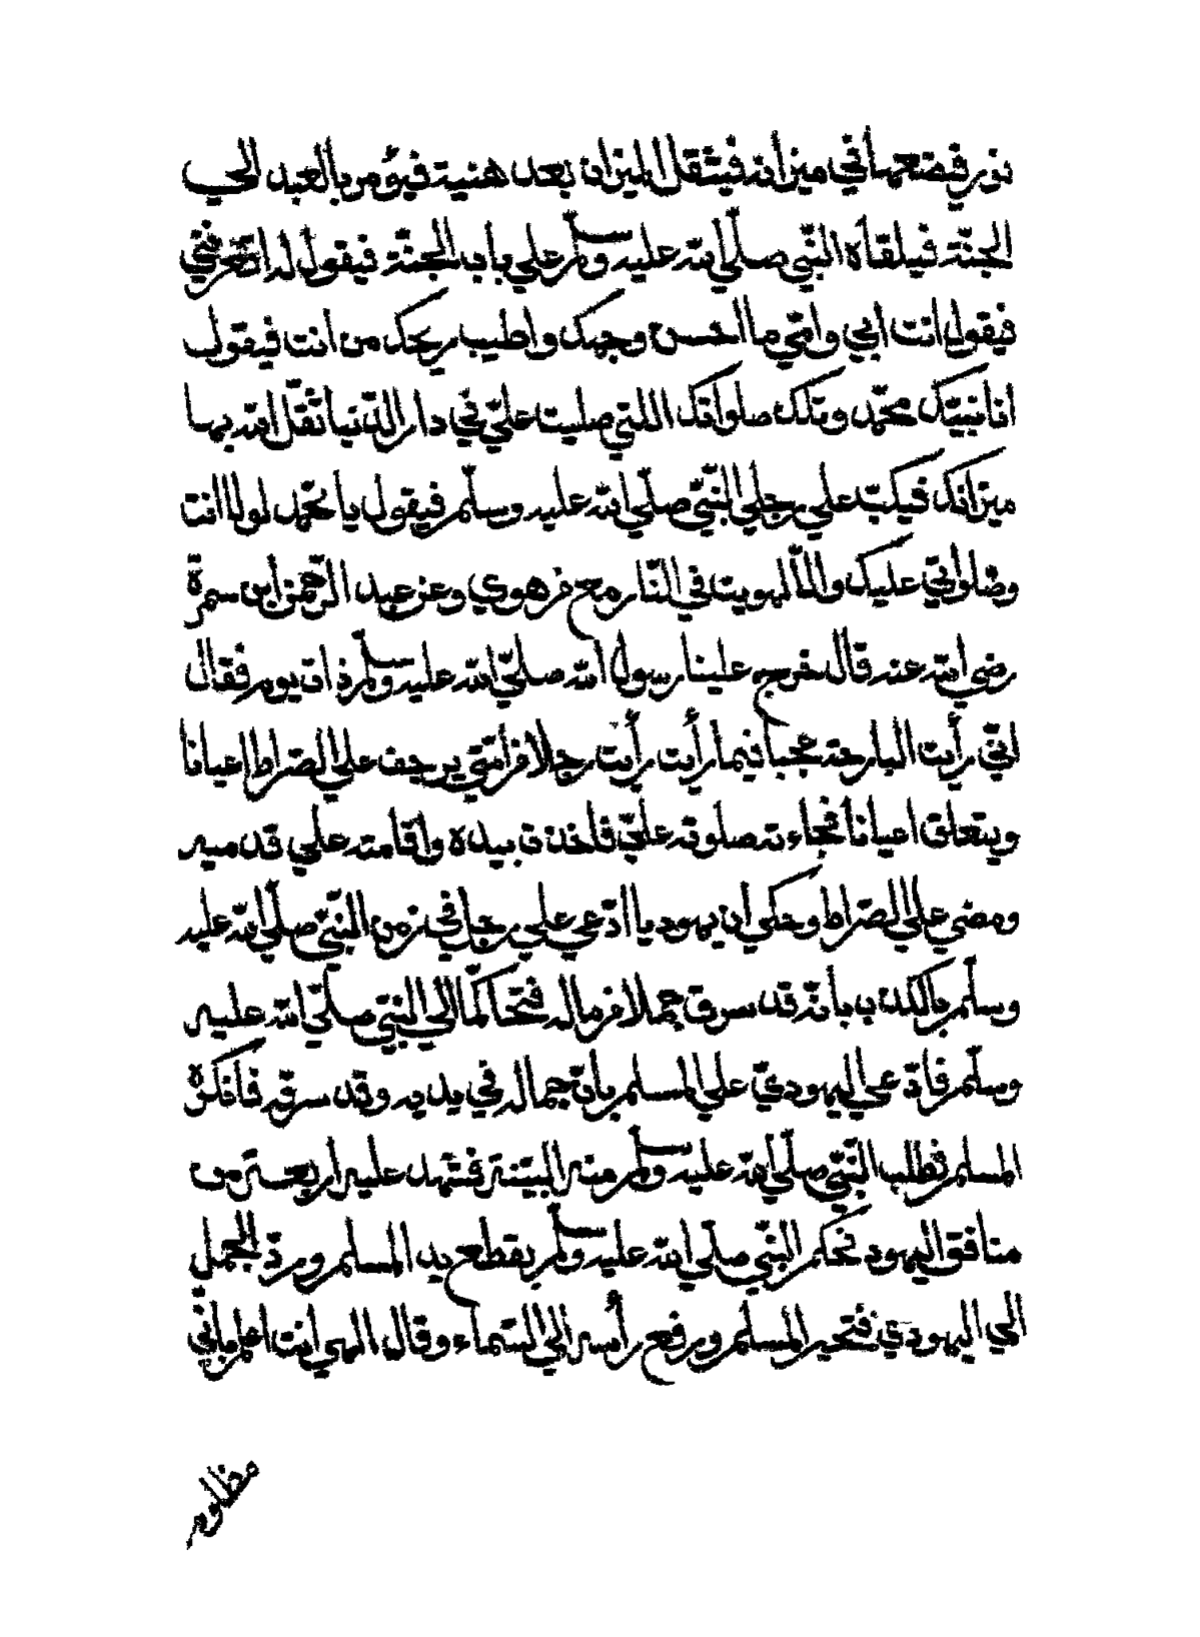 نور فيضعها في ميزانه فيثقل الميزان بعد هنية فيؤمر بالعبد الي
الجنّة فيلقاه النّبي صلّي الله عليه وسلّم علي باب الجنّة فيقول له اتعرفني
فيقول انت ابي وامّي ما احسن وجهك واطيب ريحك من انت فيقول
انا نبيّك محمّد وتلك صلواتك اللتي صليت عليّ في دار الدّنيا ثقّل الله بها
ميزانك فيكبّ علي رجلي النّبيّ صلّي الله عليه وسلّم فيقول يا محّمد لولا انت
وصلواتي عليك والّا لهويت في النّار مع من هوي وعن عبد الرّحمن ابن سمرة
رضي الله عنه قال خرج علينا رسول الله صلّي الله عليه وسلّم ذات يوم فقال
انّي رأيت البارحة عجبا فيما رأيت رأيت رجلا من أمّتي يرجف علي الصّراط إعيانا
ويتعلق اعيانا فجاءته صلوته عليّ فاخذت بيده واقامته علي قدميه
ومضي علي الصّراط وحكي ان يهوديا ادّعي علي رجل في زمن النّبيّ صلّي الله عليه
وسلّم بالكذب بانّه قد سرق جملا من ماله فتحاكمّا الي النبيّ صلّي الله عليه
وسلّم فادّعي اليهوديّ علي المسلم بانّ جماله في يديه وقد سرقه فأنكره
المسلم فطلب النّبيّ صلّي الله عليه وسلّم منه البيّنة فشهد عليه اربعة من
منافق اليهود فحكم النّبي صلّي الله عليه وسلّم بقطع يد المسلم وردّ الجمل
الي اليهودي فتحير المسلم ورفع رأسه الي السّماء وقال الهي انت اعلم بانّي
مظلوم